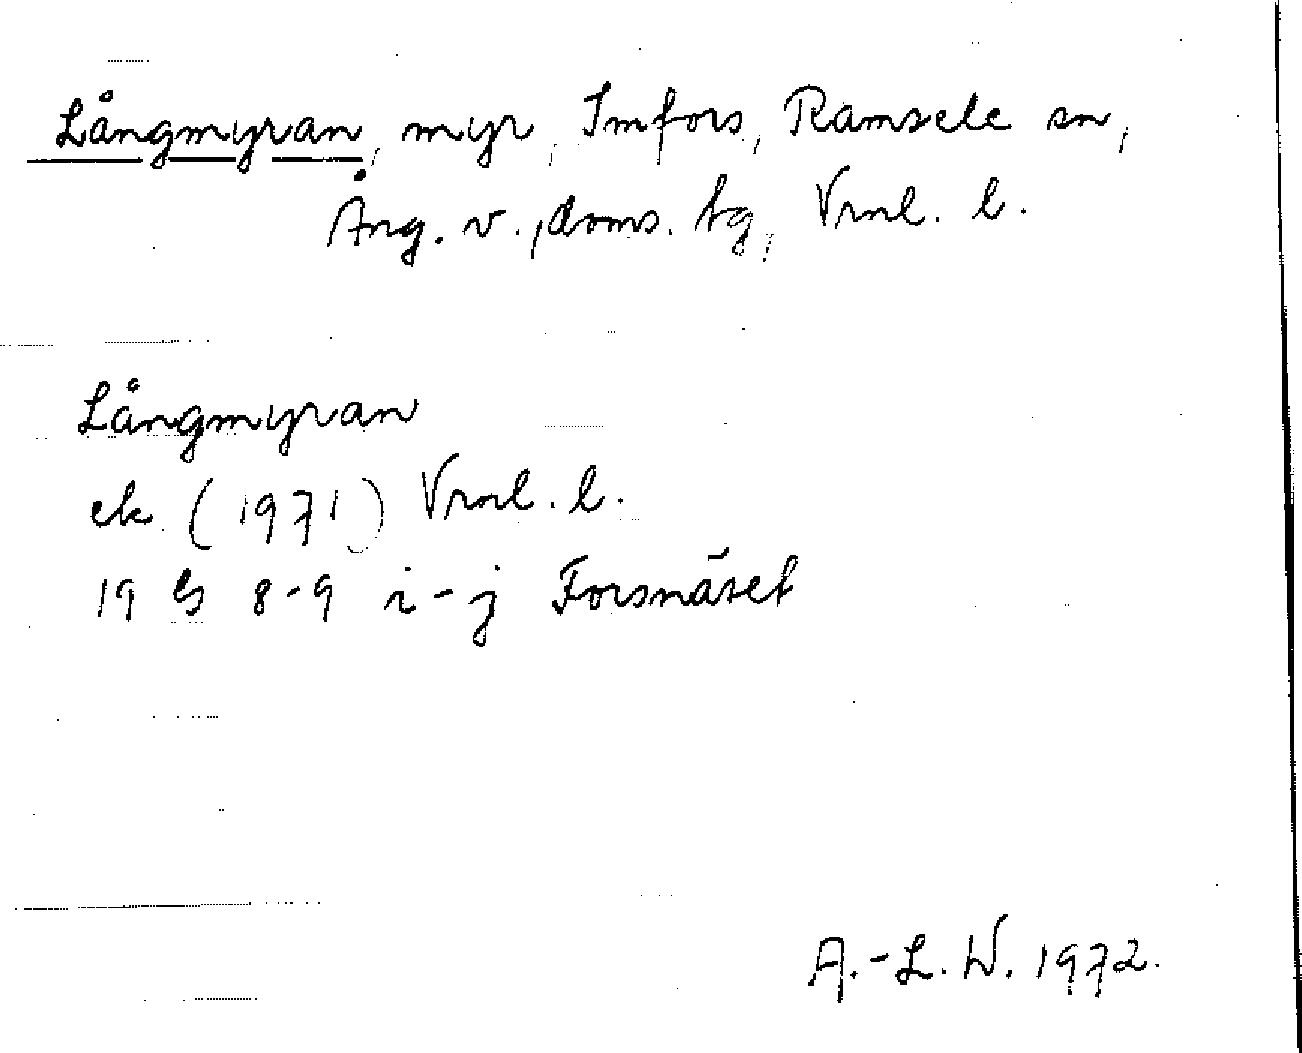 Långmyran, myr, Imfors, Ramsele sn,
Ång. v., doms. tg, Vrnl. l.
Långmyran
ek (1971) Vrnl. l.
19 G 8-9 i-j Forsnäset
A.-L. W. 1972.